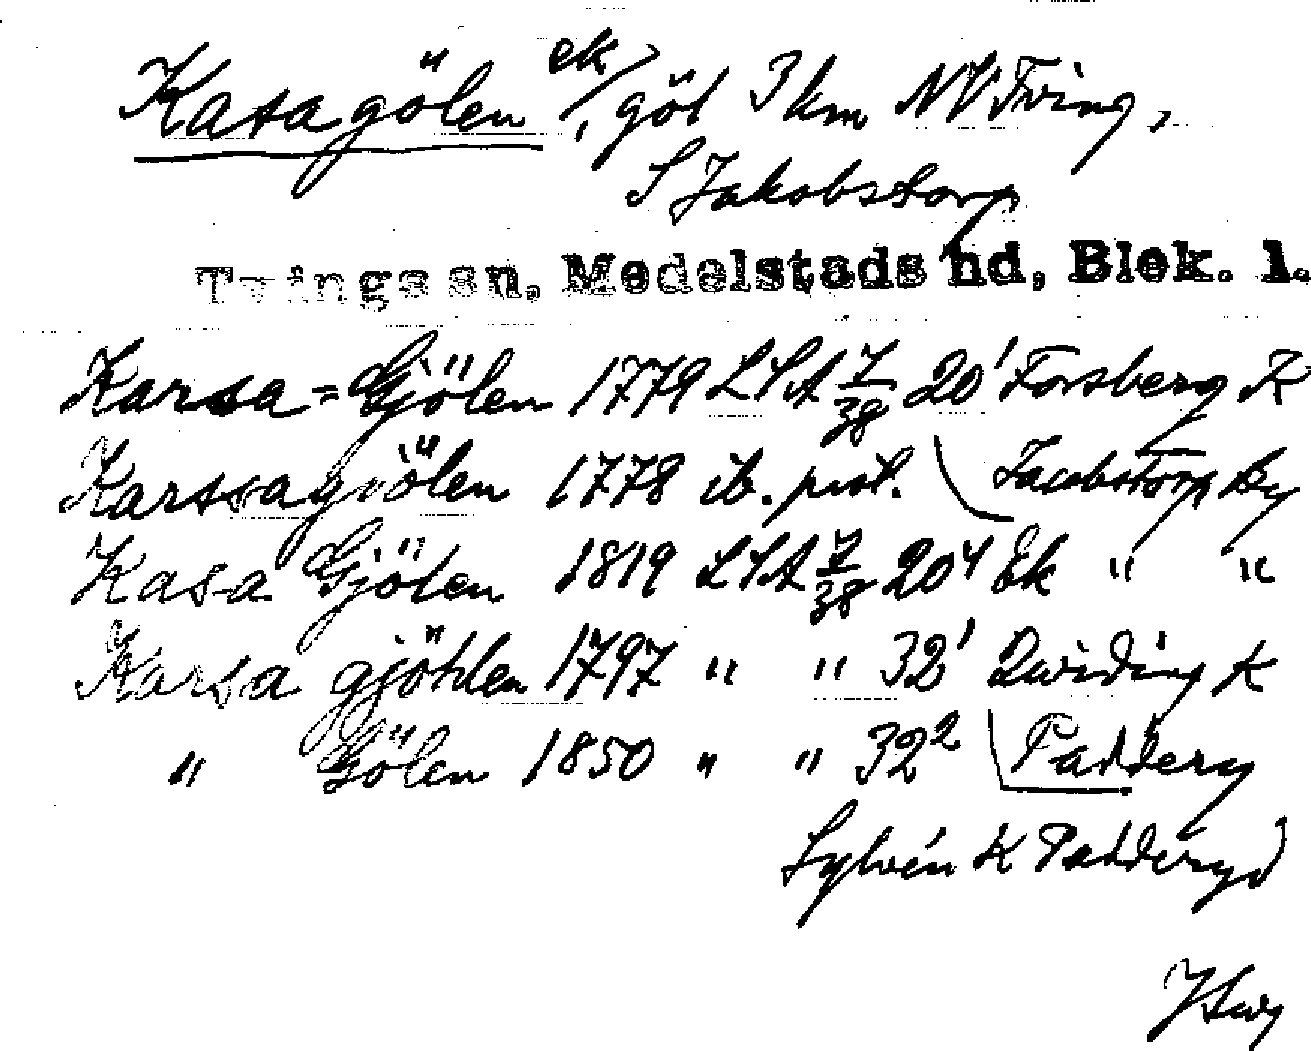 Kasagölen ek, göl 3 km NV Tving,
S Jakobstorp
Tvings sn, Medelstads hd, Blek. l.
Karsa=Gjölen 1779 LSA 7/38 20¹ Forsberg K
Karssagiölen 1778 ib. prot. Jacobstorp By
Kasa Gjölen 1819 LSA 7/38 20⁴ Ek " "
Karsa gjöhlen 1797 " " 32¹ Qwiding K
" Gölen 1850 " " 32² Padderyd
Sylvén K Padderyd